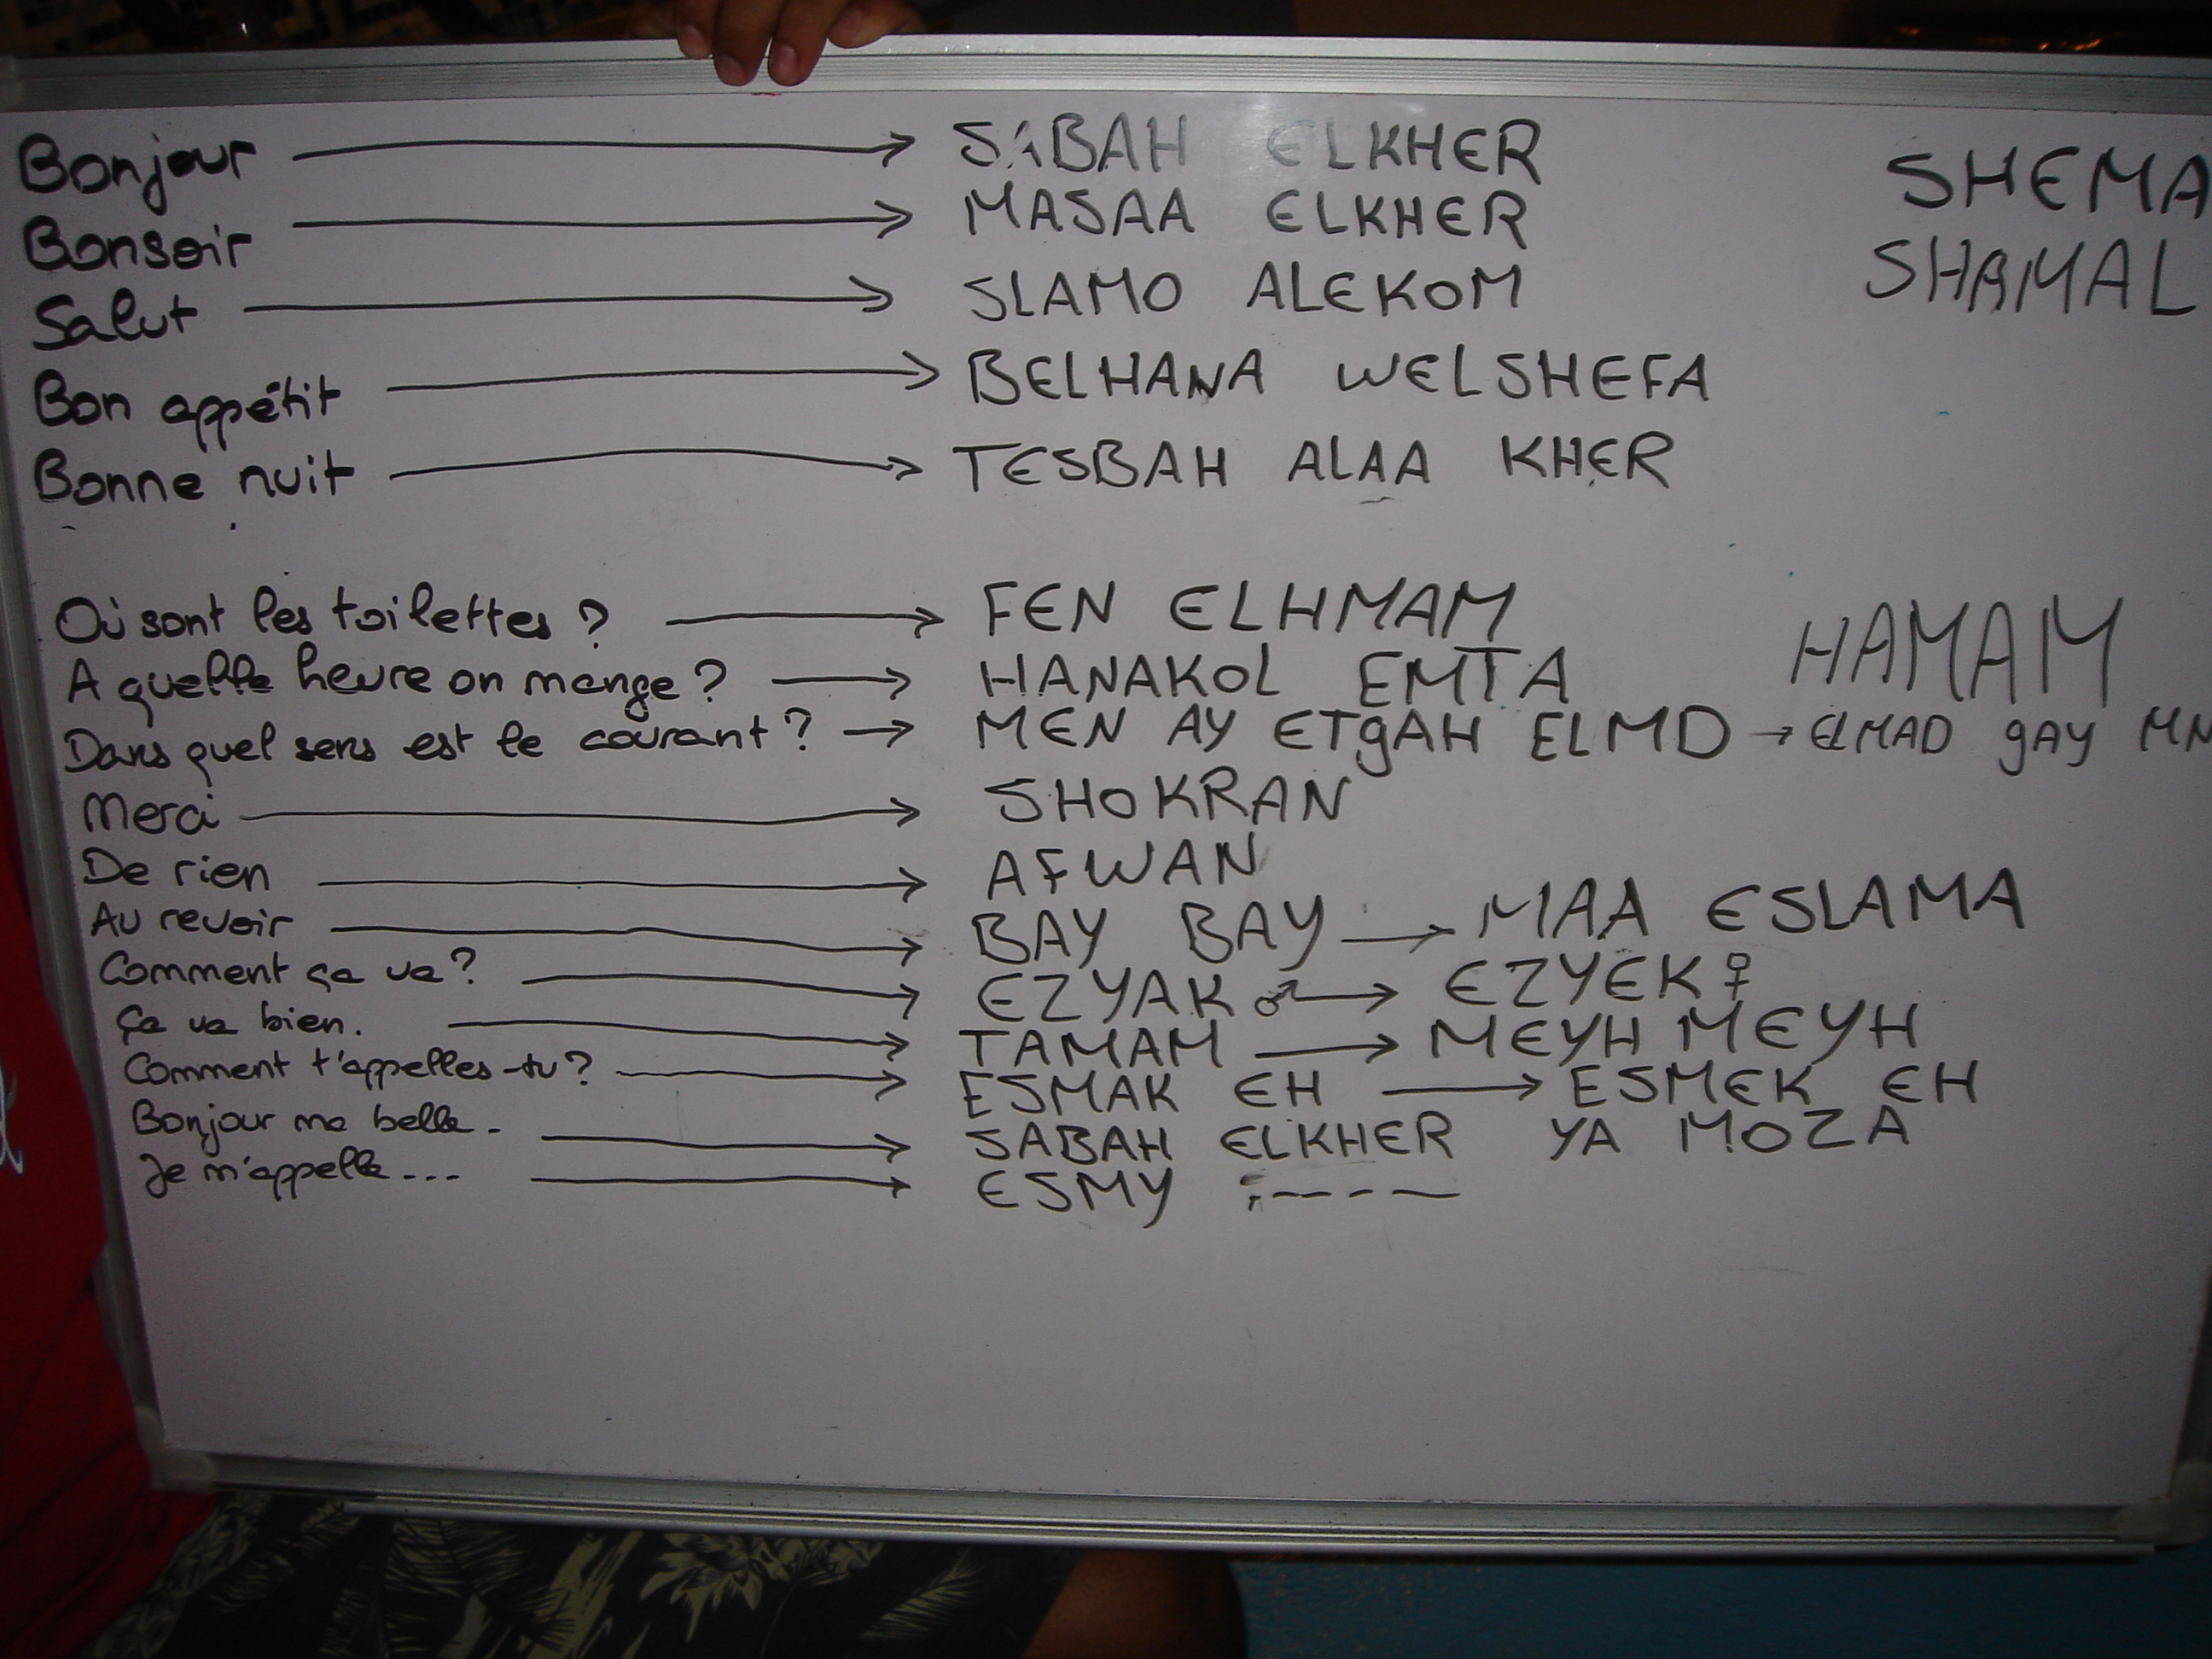 Bonjour → SABAH ELKHER
Bonsoir → MASAA ELKHER
Salut → SLAMO ALEKOM
Bon appétit → BELHANA WELSHEFA
Bonne nuit → TESBAH ALAA KHER
SHEMA
SHAMAL
Où sont les toilettes ? → FEN ELHMAM
HAMAM
A quelle heure on mange ? → HANAKOL EMTA
Dans quel sens est le courant ? → MEN AY ETgAH ELMD → ELMAD gAY MN
Merci → SHOKRAN
De rien → AFWAN
Au revoir → BAY BAY → MAA ESLAMA
Comment ça va ? → EZYAK ♂ → EZYEK ♀
Ça va bien. → TAMAM → MEYH MEYH
Comment t'appelles-tu ? → ESMAK EH → ESMEK EH
Bonjour ma belle. → SABAH ELKHER YA MOZA
Je m'appelle... → ESMY :----